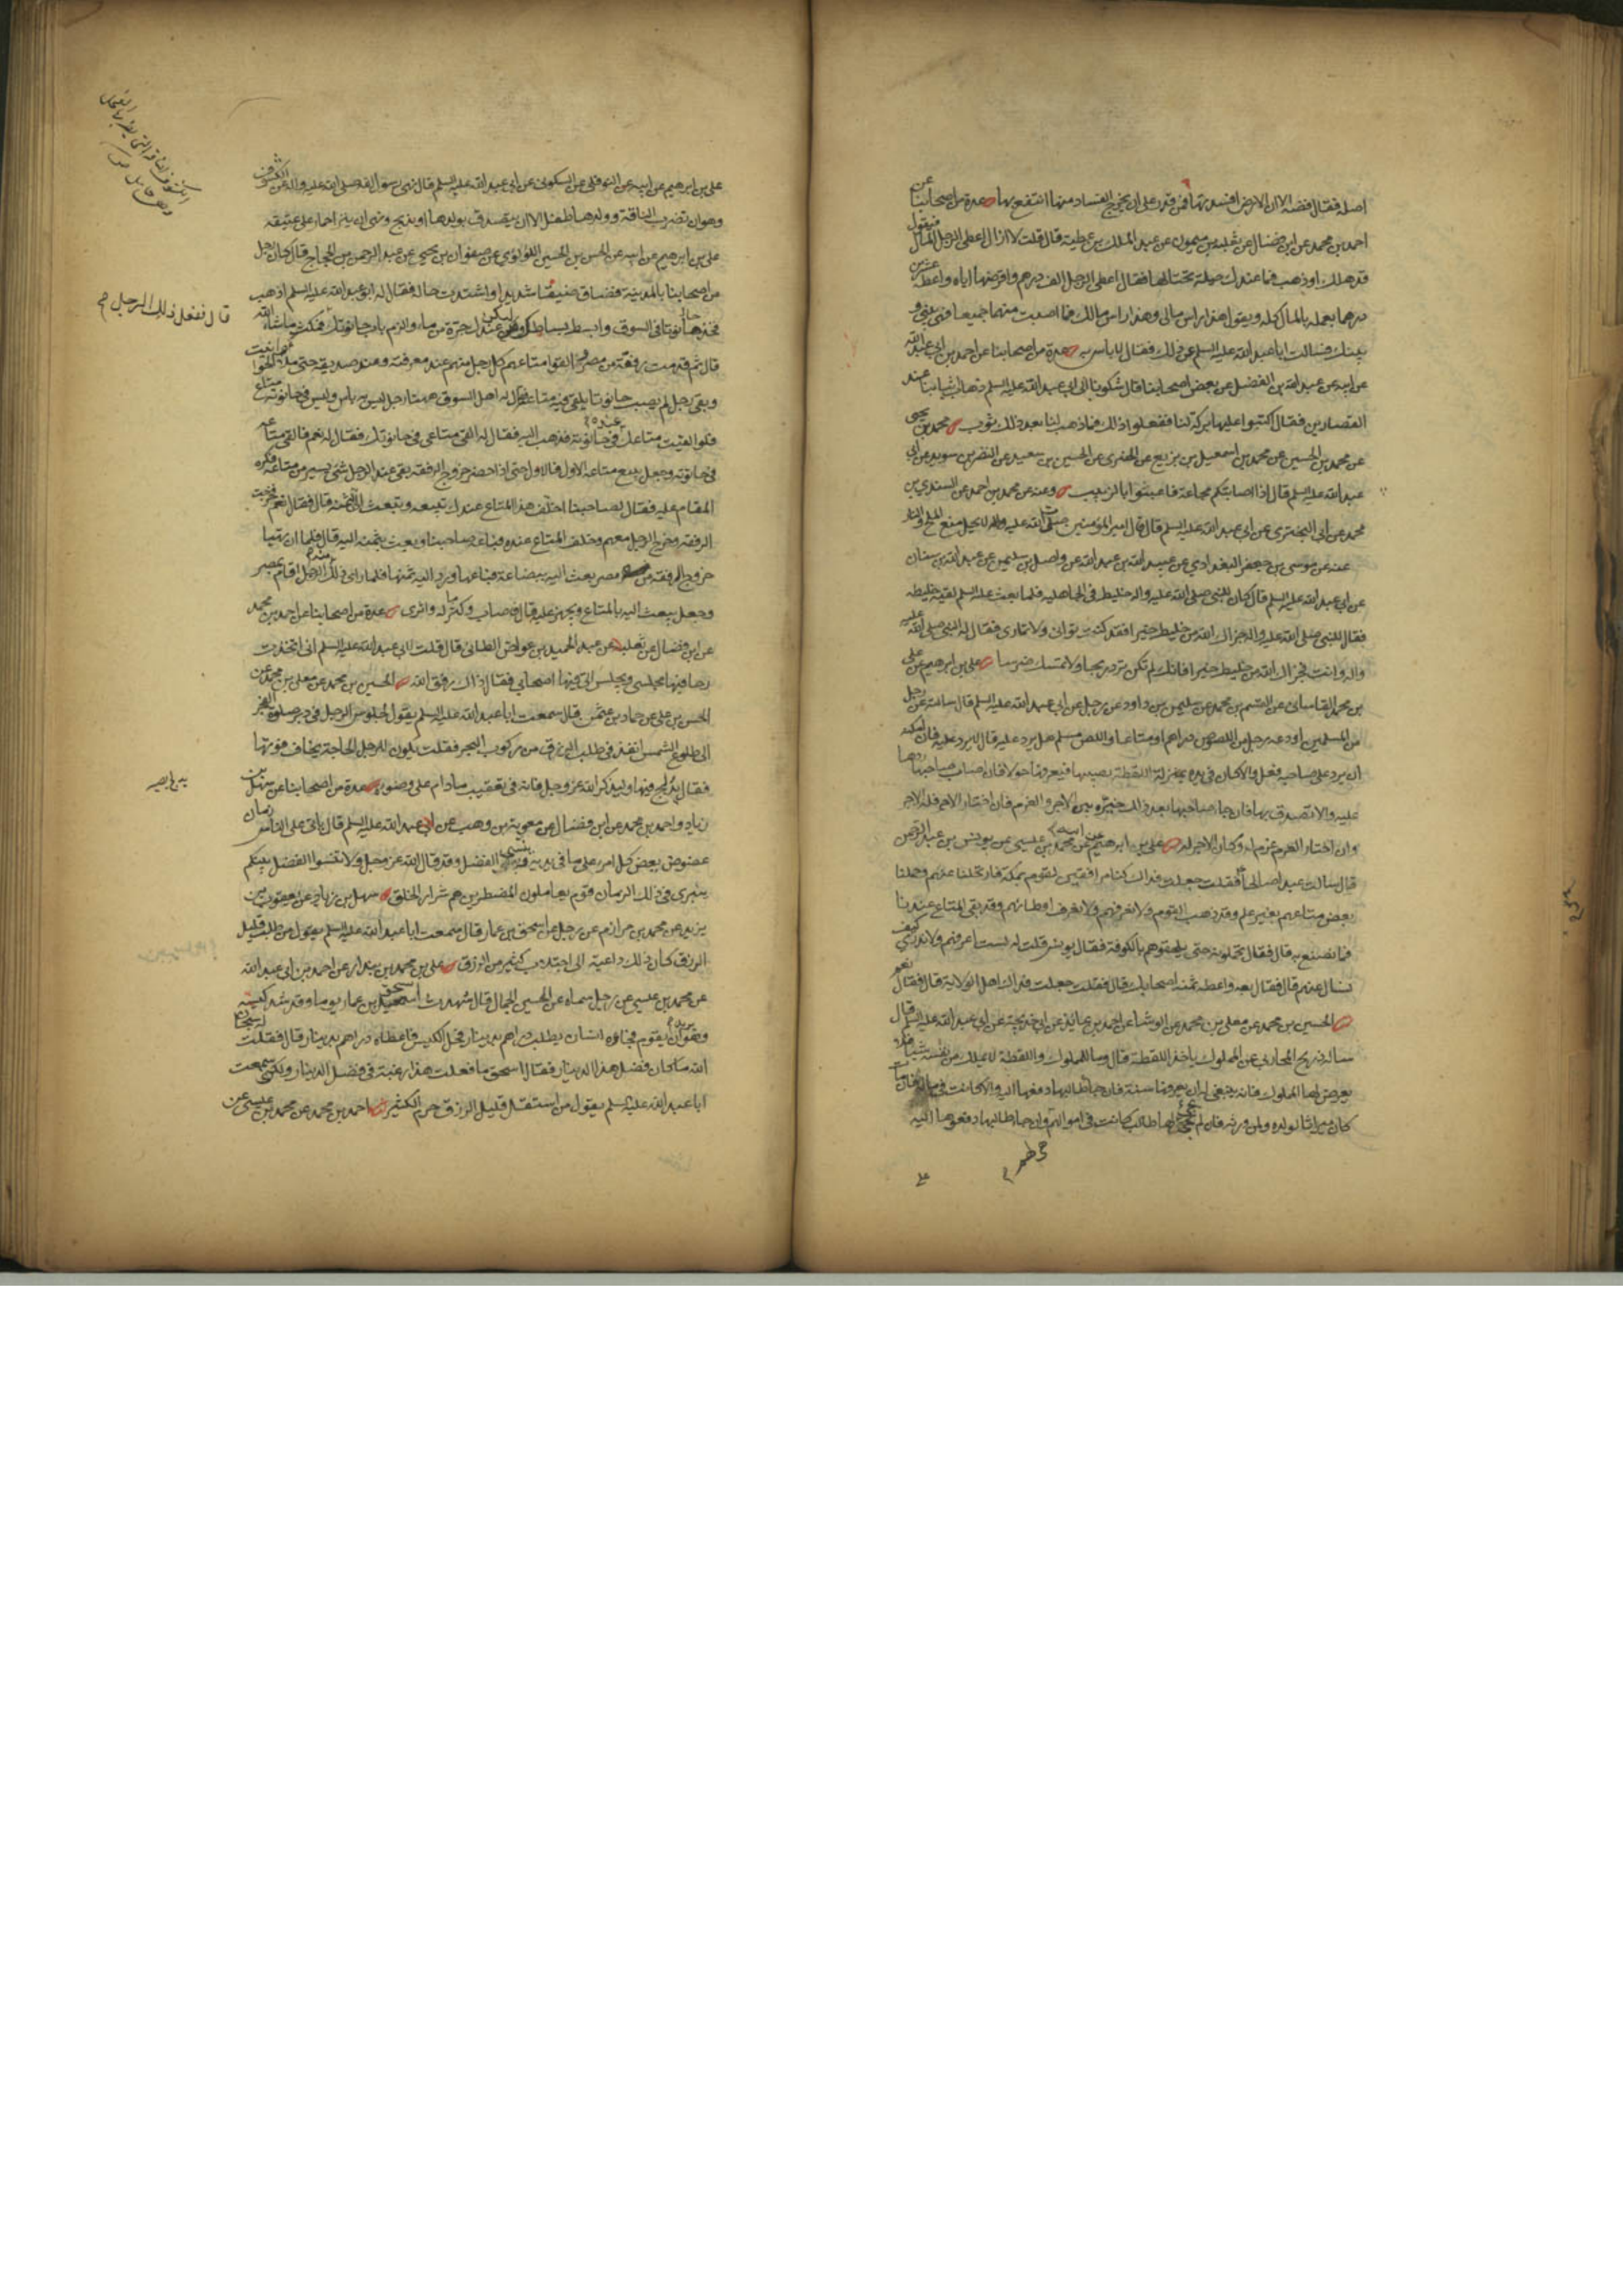 اصله فقال فضه الا ان الارض افسدتها فمن قدر على ان يخرج الفساد منها انتفع بها عدة من اصحابنا عن
احمد بن محمد عن ابن فضال عن ثعلبة بن ميمون عن عبد الملك بن عطية قال قلت لا ازال اعطى الرجل المال فيقول
قد هلك او ذهب فما عندك حيلة تحتالها فقال اعطى الرجل الف درهم واقرضها اياه واعطه عشرين
درهما يعمله بالمال كله ويقول هذا راس مالى وهذا راس مالك فما اصبت منهما جميعا فهى بينى و
بينك فسالت ابا عبد الله عليه السلم عن ذلك فقال لا باس به عدة من اصحابنا عن احمد بن ابى عبد الله
عن ابيه عن عبد الله بن الفضل عن بعض اصحابنا قال شكونا الى ابى عبد الله عليه السلم ذهاب ثيابنا عند
القصارين فقال اكتبوا عليها بركة لنا ففعلوا ذلك فما ذهب لنا بعد ذلك ثوب محمد بن يحيى
عن محمد بن الحسين عن محمد بن اسمعيل بن بزيع عن الخيبرى عن الحسين بن سعيد عن النضر بن سويد عن ابى
عبد الله عليه السلم قال اذا اصابتكم مجاعة فاعبثوا بالزبيب وعنه عن محمد بن احمد عن السندي بن
محمد عن ابى البخترى عن ابى عبد الله عليه السلم قال قال امير المؤمنين صلى الله عليه واله لا يحل منع الملح والنار
عنه عن موسى بن جعفر البغدادي عن عبيد الله بن عبد الله عن واصل بن سليمن عن عبد الله بن سنان
عن ابى عبد الله عليه السلم قال كان للنبى صلى الله عليه واله خليط فى الجاهلية فلما بعث عليه السلم لقيه خليطه
فقال للنبى صلى الله عليه واله جزاك الله من خليط خيرا فقد كنت تواتى ولا تمارى فقال له النبى صلى الله عليه
واله وانت فجزاك الله من خليط خيرا فانك لم تكن ترد ربحا ولا تمسك ضرسا على بن ابرهيم عن على
بن محمد القاسانى عن القسم بن محمد عن سليمن بن داود عن رجل عن ابى عبد الله عليه السلم قال سالته عن رجل
من المسلمين اودعه رجل من اللصوص دراهم او متاعا واللص مسلم هل يرد عليه قال لا يرد عليه فان امكنه
ان يرد على صاحبه فعل والا كان فى يده بمنزلة اللقطة يصيبها فيعرفها حولا فان اصاب صاحبها ردها
عليه والا تصدق بها فان جاء صاحبها بعد ذلك خيره بين الاجر والغرم فان اختار الاجر فله الاجر
وان اختار الغرم غرم له وكان الاجر له على بن ابرهيم عن ابيه عن محمد بن عيسى عن يونس بن عبد الرحمن
قال سالت عبدا صالحا فقلت جعلت فداك كنا مرافقين لقوم بمكة فارتحلنا عنهم وحملنا
بعض متاعهم بغير علم وقد ذهب القوم ولا نعرفهم ولا نعرف اوطانهم وقد بقى المتاع عندنا
فما نصنع به قال فقال تحملونه حتى يلحقوهم بالكوفة فقال يونس قلت له لست اعرفهم ولا ندرى كيف
نسال عنهم قال فقال بعه واعطه ثمنه اصحابك قال فقلت جعلت فداك اهل الولاية قال فقال نعم
الحسين بن محمد عن معلى بن محمد عن الوشا عن احمد بن عائذ عن ابى خديجة عن ابى عبد الله عليه السلم قال
ساله ذريح المحاربى عن المملوك ياخذ اللقطة قال وما للمملوك واللقطة لا يملك من نفسه شيئا فلا
يعرض لها المملوك فانه ينبغى له ان يعرفها سنة فان جاء طالبها دفعها اليه والا كانت فى ماله فان مات
كان ميراثا لولده ولمن ورثه فان لم يجئ لها طالب كانت فى اموالهم وان جاء طالبها دفعوها اليه
على بن ابرهيم عن ابيه عن النوفلى عن السكونى عن ابى عبد الله عليه السلم قال نهى رسول الله صلى الله عليه واله عن الكشوف
وهو ان تضرب الناقة وولدها طفل الا ان يتصدق بولدها او يذبح ونهى ان ينزا حمار على عتيقه
على بن ابرهيم عن ابيه عن الحسن بن الحسين اللؤلؤي عن صفوان بن يحيى عن عبد الرحمن بن الحجاج قال كان رجل
من اصحابنا بالمدينة فضاق ضيقا شديدا واشتدت حاله فقال له ابو عبد الله عليه السلم اذهب
فخذ حانوتا فى السوق وابسط بساطك وليكن عندك جرة من ماء والزم باب حانوتك فمكث ما شاء الله
قال ثم قدمت رفقة من مصر فالقوا متاعهم كل رجل منهم عند معرفته وعند صديقه حتى ملاوا الحوانيت
وبقى رجل لم يصب حانوتا يلقى فيه متاعه فقال له اهل السوق ههنا رجل ليس به باس وليس فى حانوته متاع
فلو القيت متاعك فى حانوته فذهب اليه فقال له القى متاعى فى حانوتك فقال له نعم فالقى متاعه
فى حانوته وجعل يبيع متاعه الاول فالاول حتى اذا حضر خروج الرفقة بقى عند الرجل شئ يسير من متاعه فكره
المقام عليه فقال لصاحبنا اخلف هذا المتاع عندك تبيعه وتبعث الى بثمنه قال فقال نعم فخرجت
الرفقة وخرج الرجل معهم وخلف المتاع عنده فباعه صاحبنا وبعث بثمنه اليه قال فلما ان تهيا
خروج الرفقة من مصر بعث اليه ببضاعة فباعها ورد اليه ثمنها فلما راى ذلك الرجل اقام بمصر
وجعل يبعث اليه بالمتاع ويجهز عليه قال فاصاب وكثر ماله واثرى عدة من اصحابنا عن احمد بن محمد
عن ابن فضال عن ثعلبة عن عبد الحميد بن عواض الطائى قال قلت لابى عبد الله عليه السلم انى اتخذت
رحا فيها مجلسى ويجلس الى فيها اصحابى فقال ذاك رفق الله الحسين بن محمد عن معلى بن محمد عن
الحسن بن على عن حماد بن عثمن قال سمعت ابا عبد الله عليه السلم يقول لجلوس الرجل فى دبر صلوة الفجر
الى طلوع الشمس انفذ فى طلب الرزق من ركوب البحر فقلت يكون للرجل الحاجة يخاف فوتها
فقال يدلج فيها وليذكر الله عز وجل فانه فى تعقيب ما دام على وضوء عدة من اصحابنا عن سهل بن
زياد واحمد بن محمد عن ابن فضال عن معوية بن وهب عن ابى عبد الله عليه السلم قال ياتى على الناس زمان
عضوض يعض كل امرء على ما فى يديه وينسى الفضل وقد قال الله عز وجل ولا تنسوا الفضل بينكم
ينبرى فى ذلك الزمان قوم يعاملون المضطرين هم شرار الخلق سهل بن زياد عن يعقوب بن
يزيد عن محمد بن مرازم عن رجل عن اسحق بن عمار قال سمعت ابا عبد الله عليه السلم يقول من طلب قليل
الرزق كان ذلك داعيه الى اجتلاب كثير من الرزق على بن محمد بن بندار عن احمد بن ابى عبد الله
عن محمد بن عيسى عن رجل سماه عن الحسين الجمال قال شهدت اسحق بن عمار يوما وقد شد كيسه
وهو يريد ان يقوم فجاءه انسان يطلب دراهم بدينار فحل الكيس فاعطاه دراهم بدينار قال فقلت له سبحان
الله ما كان فضل هذا الدينار فقال اسحق ما فعلت هذا رغبة فى فضل الدينار ولكنى سمعت
ابا عبد الله عليه السلم يقول من استقل قليل الرزق حرم الكثير احمد بن محمد عن محمد بن عيسى عن
قال ففعل ذلك الرجل